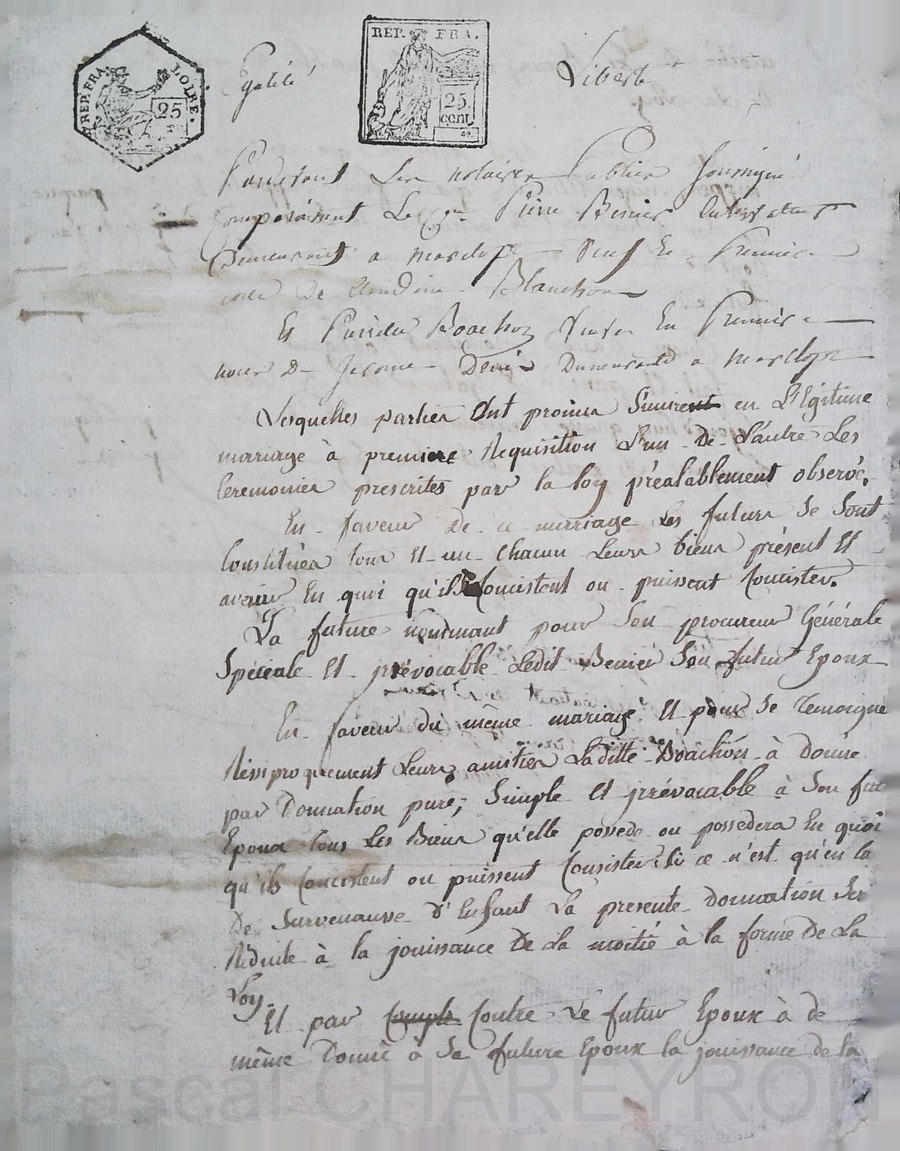 REP. FRA. LOIRE.
25
Egalité
REP. FRA.
25
cent.
Liberté
Pardevant Les notaires Publics Soussigné
Comparaissent Le Cen Pierre Benier
Demeurant a marclopt Veuf En Premiere
noce De Claudine Blanchon
Et Boachon Veuve En Premiere
noces De Jerome Demeurant a Marclopt
Lesquelles parties Ont promis S'unir en Légitime
marriage à premiere Requisition L'un De L'autre Les
Ceremonies prescrites par la loy préalablement observéc.
En faveur De ce marriage Les futurs Se Sont
Constitués tous Et un Chacun Leurs biens présent Et
avenir En quoi qu'ils Concistent ou puissent Concister.
La future nommant pour Son procureur Générale
Spéciale Et jrrévocable Ledit Benier Son futur Epoux
En faveur du même mariage Et pour Se Temoigne
Réssiproquement Leurs amitiés Laditte Boachon à Donné
par Donnation pure, Simple Et jrrévocable à Son fut
Epoux tous Les Biens qu'elle possede ou possedera En quoi
qu'ils Concistent ou puissent Consister Si ce n'est qu'en Ca
De Survenance d'Enfant La présente donnation Ser
Réduite à la jouissance De La moitié à la forme De La
Loy.
Et par Contre Le futur Epoux à de
même Donné à Sa future Epoux la jouissance de la
Pascal CHAREYRON